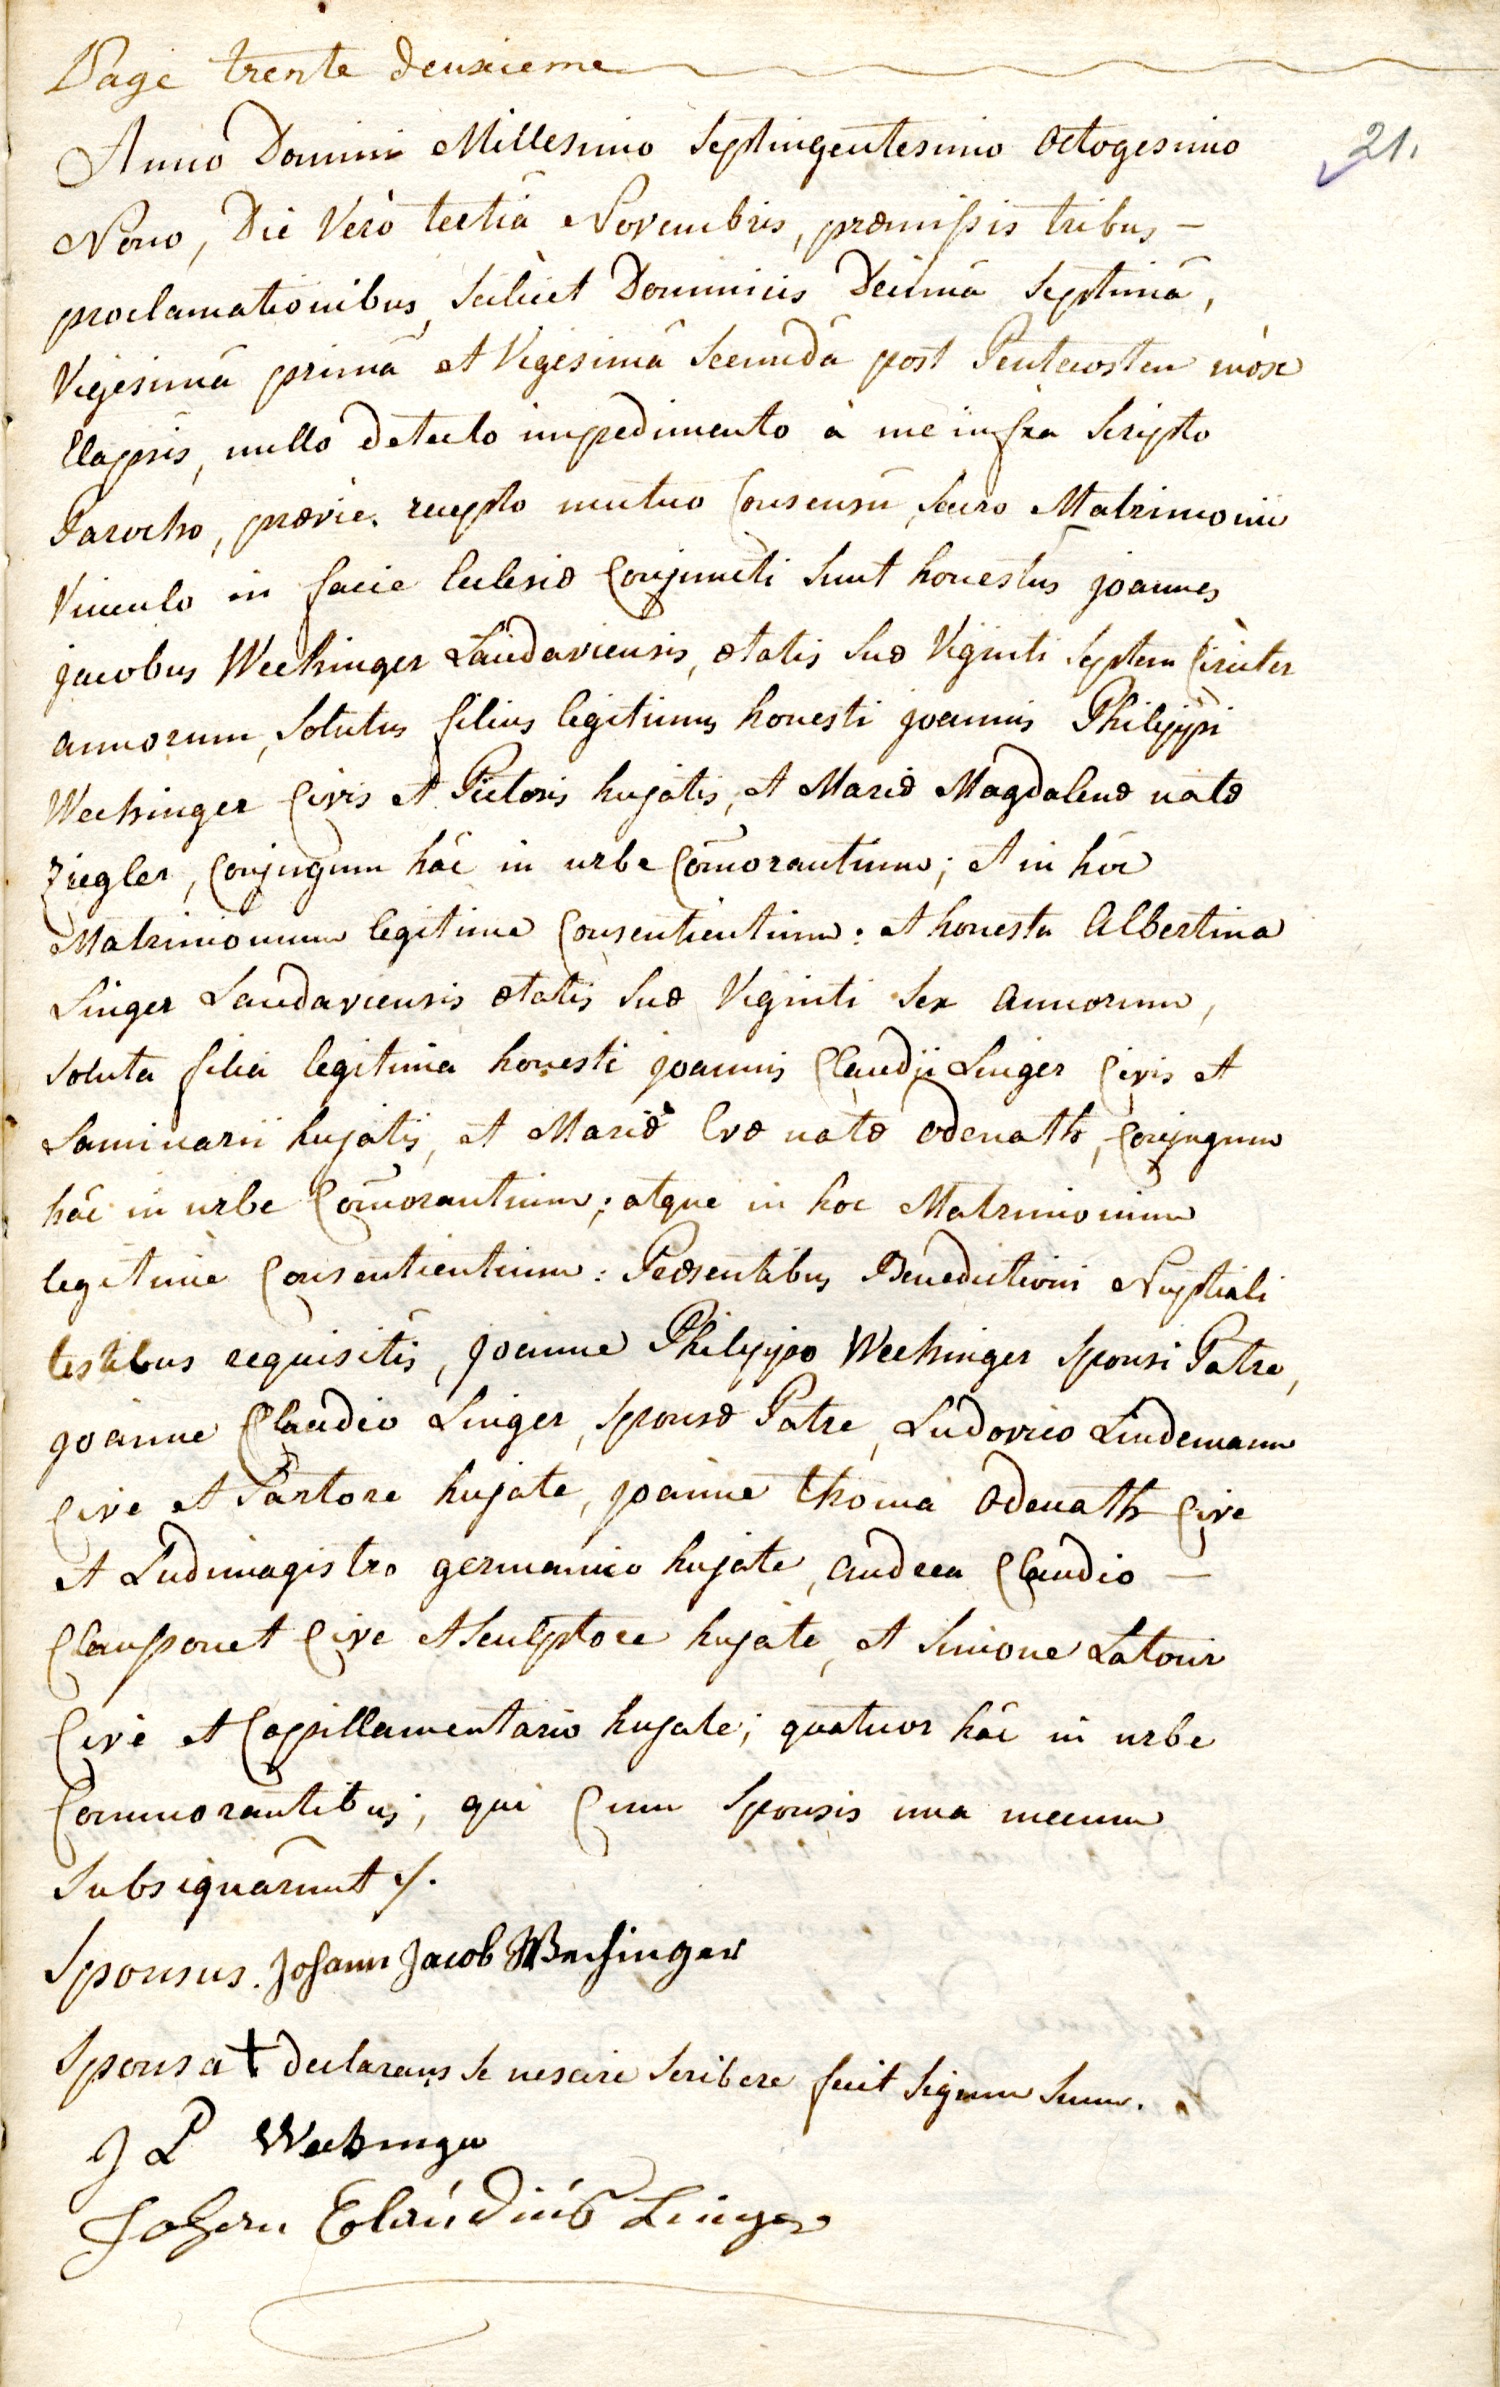 Page trente deuxieme
21.
Anno Domini Millesimo Septingentesimo Octogesimo
Nono, Die Verò tertiâ Novembris, præmissis tribus –
proclamationibus, scilicet Dominicis Decimâ Septimâ,
Vigesimâ primâ et Vigesimâ Secundâ post Pentecosten mòx
Elapsis, nullo detecto impedimento à me infra scripto
Parocho, prævie recepto mutuo Consensu, sacro Matrimonii
Vinculo in facie Ecclesiæ Conjuncti sunt honestus joannes
jacobus Weckinger Landaviensis, ætatis suæ Viginti septem Circiter
annorum, solutus filius legitimus honesti joannis Philippi
Weckinger Civis et Pictoris hujatis, et Mariæ Magdalenæ natæ
Ziegler, Conjugum hâc in urbe Com̃orantium; et in hôc
Matrimonium legitime Consentientium: et honesta Albertina
Linger Landaviensis ætatis suæ Viginti sex annorum,
soluta filia legitima honesti joannis Claudii Linger Civis et
Laminarii hujatis, et Mariæ Evæ natæ Odenath, Conjugum
hâc in urbe Com̃orantium; atque in hoc Matrimonium
legitimè Consentientium: Præsentibus Benedictioni Nuptiali
testibus requisitis, joanne Philippo Weckinger Sponsi Patre,
joanne Claudio Linger, sponsæ Patre, Ludovico Lindemann
Cive et Sartore hujate, joanne thoma Odenath Cive
et Ludimagistro germanico hujate, andrea Claudio –
Clausponet Cive et Sculptore hujate, et Simone Latour
Cive et Capillamentario hujate; quatuor hâc in urbe
Commorantibus; qui Cum Sponsis una mecum
Subsignârunt ./.
Sponsus. Johann Jacob Weckinger
Sponsa + declarans se nescire scribere fecit signum suum.
J P Weckinger
Johann Claúdiús Linger